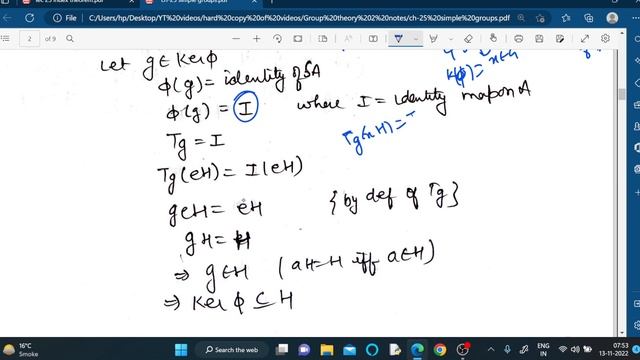 lec 25 index theorem.pdf
ch-25 simple groups.pdf
C:/Users/hp/Desktop/YT%20videos/hard%20copy%20of%20videos/Group%20theory%202%20notes/ch-25%20simple%20groups.pdf
2 of 9
Let g∈Kerϕ
ϕ(g) = identity of SA
ϕ(g) = I where I = identity map on A
Tg = I
Tg(xH) = T
Tg(eH) = I(eH)
geH = eH {by def of Tg}
gH = H
⇒ g∈H (aH=H iff a∈H)
⇒ Ker ϕ ⊆ H
16°C
Smoke
Search the web
ENG
IN
07:53
13-11-2022